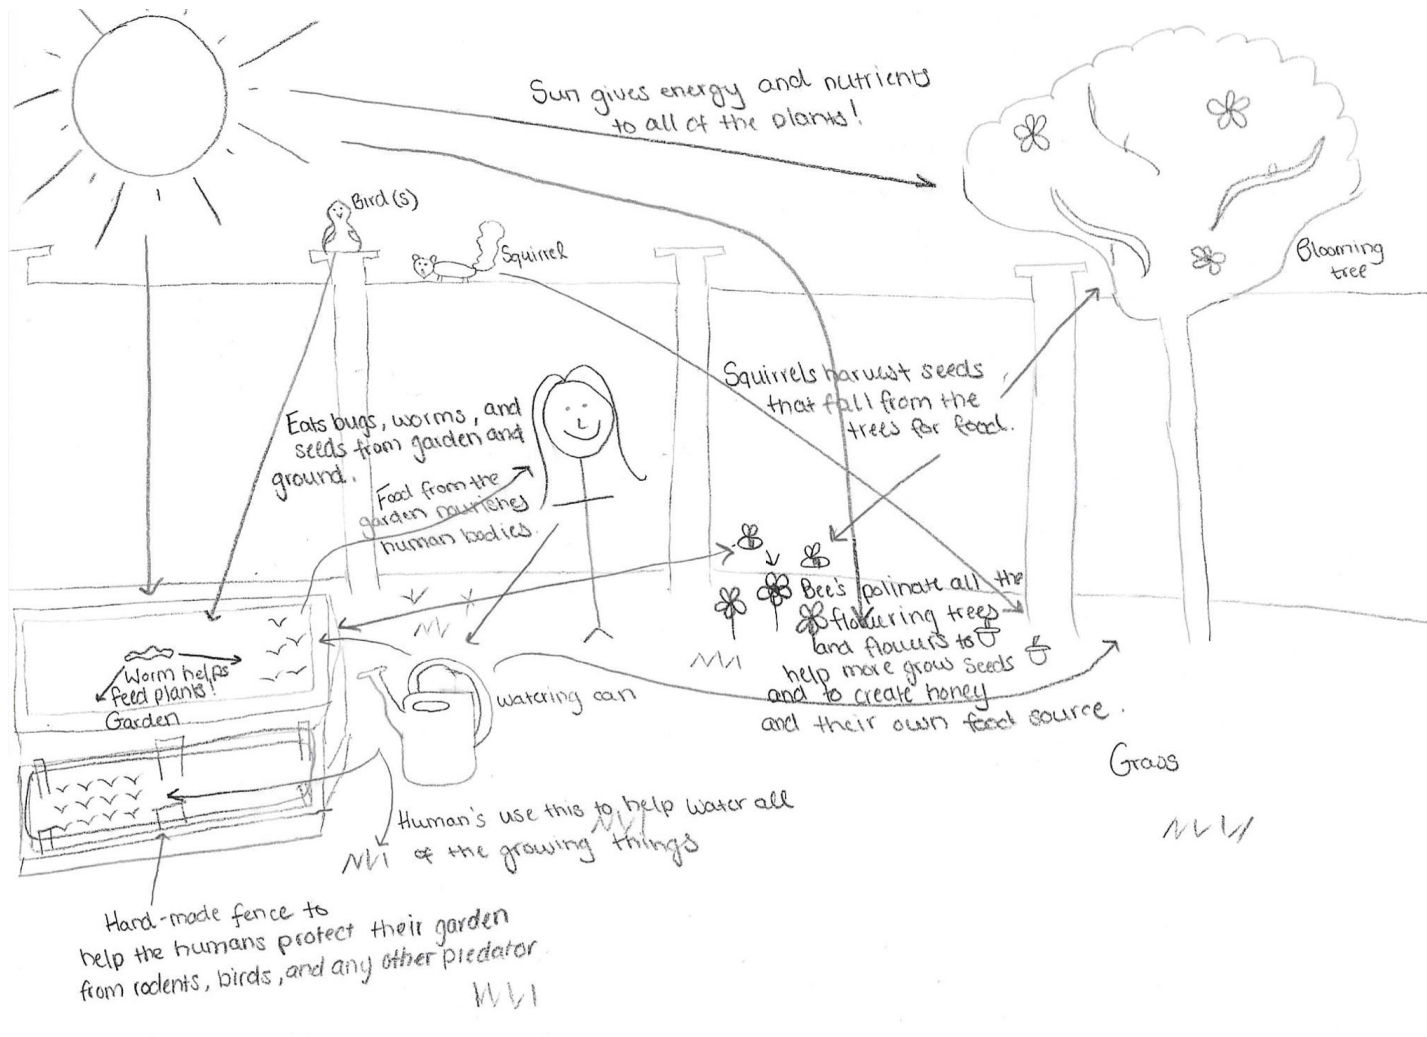 Sun gives energy and nutrients
to all of the plants!
Bird(s)
Squirrel
Blooming
tree
Squirrels harvest seeds
that fall from the
trees for food.
Eats bugs, worms, and
seeds from garden and
ground.
Food from the
garden nourishes
human bodies.
Bee's polinate all the
flowering trees
and flowers to
help more grow seeds
and to create honey
and their own food source.
Worm helps
feed plants!
Garden
watering can
Grass
Human's use this to help water all
of the growing things
Hand-made fence to
help the humans protect their garden
from rodents, birds, and any other predator